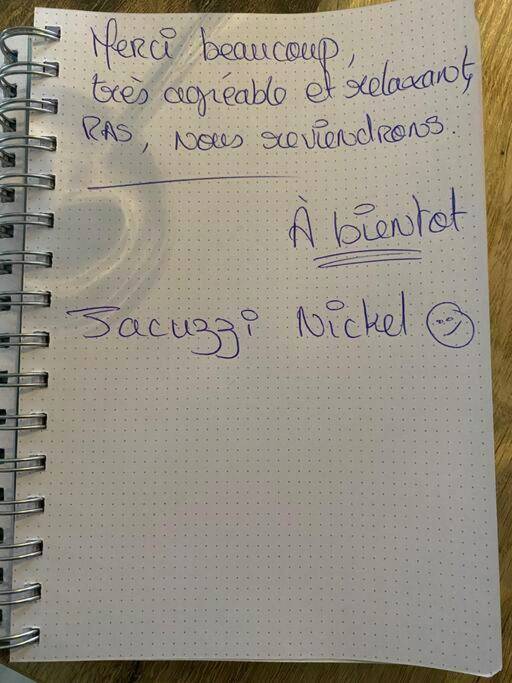 Merci beaucoup,
très agréable et relaxant,
RAS, nous reviendrons.
À bientot
Jacuzzi Nickel